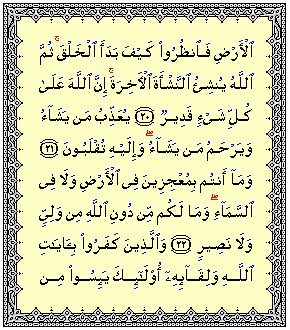 ٱلْأَرْضِ فَٱنظُرُوا۟ كَيْفَ بَدَأَ ٱلْخَلْقَ ۚ ثُمَّ
ٱللَّهُ يُنشِئُ ٱلنَّشْأَةَ ٱلْءَاخِرَةَ ۚ إِنَّ ٱللَّهَ عَلَىٰ
كُلِّ شَىْءٍ قَدِيرٌ ﴿٢٠﴾ يُعَذِّبُ مَن يَشَآءُ
وَيَرْحَمُ مَن يَشَآءُ ۖ وَإِلَيْهِ تُقْلَبُونَ ﴿٢١﴾
وَمَآ أَنتُم بِمُعْجِزِينَ فِى ٱلْأَرْضِ وَلَا فِى
ٱلسَّمَآءِ ۖ وَمَا لَكُم مِّن دُونِ ٱللَّهِ مِن وَلِىٍّ
وَلَا نَصِيرٍ ﴿٢٢﴾ وَٱلَّذِينَ كَفَرُوا۟ بِـَٔايَـٰتِ
ٱللَّهِ وَلِقَآئِهِۦٓ أُو۟لَـٰٓئِكَ يَئِسُوا۟ مِن